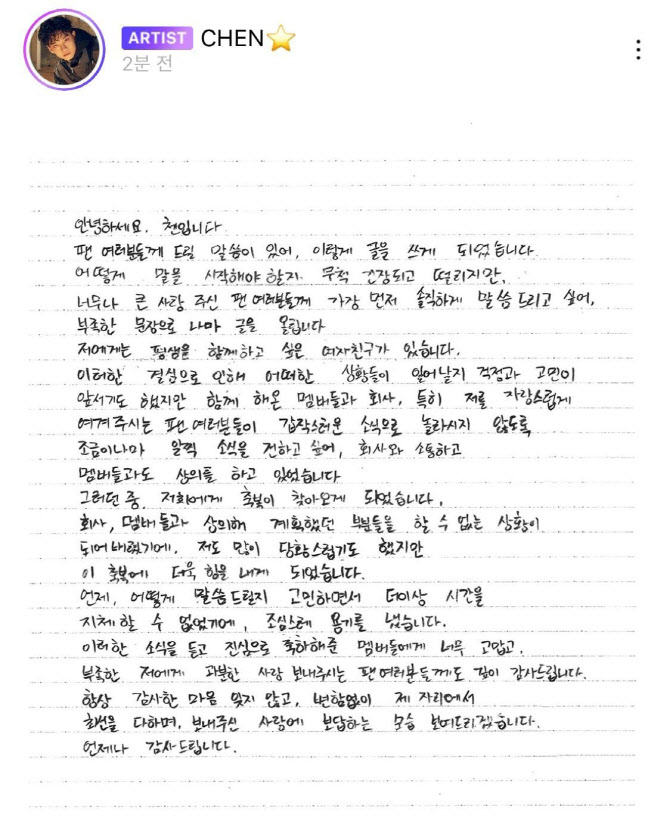 ARTIST CHEN⭐
2분 전
안녕하세요. 첸입니다
팬 여러분들께 드릴 말씀이 있어, 이렇게 글을 쓰게 되었습니다.
어떻게 말을 시작해야 할지. 무척 긴장되고 떨리지만,
너무나 큰 사랑 주신 팬 여러분들께 가장 먼저 솔직하게 말씀드리고 싶어,
부족한 문장으로 나마 글을 올립니다
저에게는 평생을 함께하고 싶은 여자친구가 있습니다.
이러한 결심으로 인해 어떠한 상황들이 일어날지 걱정과 고민이
앞서기도 했지만 함께 해온 멤버들과 회사, 특히 저를 자랑스럽게
여겨주시는 팬 여러분들이 갑작스러운 소식으로 놀라시지 않도록
조금이나마 일찍 소식을 전하고 싶어, 회사와 소통하고
멤버들과도 상의를 하고 있었습니다
그러던 중, 저희에게 축복이 찾아오게 되었습니다.
회사, 멤버들과 상의해 계획했던 부분들을 할 수 없는 상황이
되어버렸기에. 저도 많이 당황스럽기도 했지만
이 축복에 더욱 힘을 내게 되었습니다.
언제, 어떻게 말씀드릴지 고민하면서 더이상 시간을
지체할 수 없었기에, 조심스레 용기를 냈습니다.
이러한 소식을 듣고 진심으로 축하해준 멤버들에게 너무 고맙고,
부족한 저에게 과분한 사랑 보내주시는 팬 여러분들께도 깊이 감사드립니다.
항상 감사한 마음 잊지 않고, 변함없이 제 자리에서
최선을 다하며, 보내주신 사랑에 보답하는 모습 보여드리겠습니다.
언제나 감사드립니다.